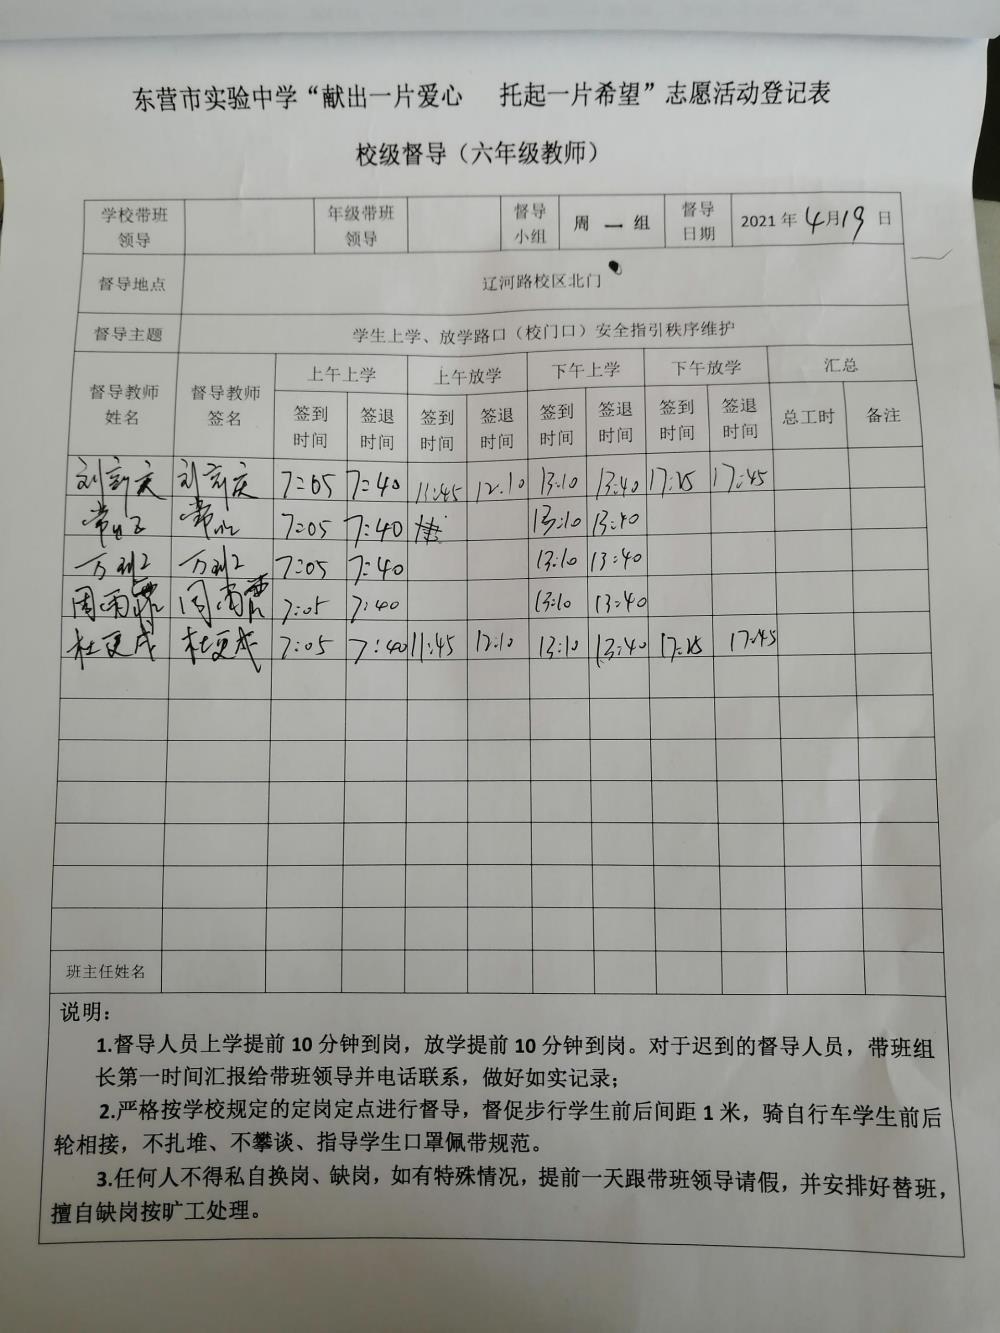 东营市实验中学“献出一片爱心 托起一片希望”志愿活动登记表
校级督导（六年级教师）
学校带班领导 年级带班领导 督导小组 周一组 督导日期 2021年4月19日
督导地点 辽河路校区北门
督导主题 学生上学、放学路口（校门口）安全指引秩序维护
督导教师姓名 督导教师签名 上午上学 上午放学 下午上学 下午放学 汇总
签到时间 签退时间 签到时间 签退时间 签到时间 签退时间 签到时间 签退时间 总工时 备注
刘新庆 刘新庆 7:05 7:40 11:45 12:10 13:10 13:40 17:25 17:45
常 常 7:05 7:40 13:10 13:40
万 万 7:05 7:40 13:10 13:40
周雨霏 周雨霏 7:05 7:40 13:10 13:40
杜更成 杜更成 7:05 7:40 11:45 12:10 13:10 13:40 17:25 17:45
班主任姓名
说明：
1.督导人员上学提前10分钟到岗，放学提前10分钟到岗。对于迟到的督导人员，带班组
长第一时间汇报给带班领导并电话联系，做好如实记录；
2.严格按学校规定的定岗定点进行督导，督促步行学生前后间距1米，骑自行车学生前后
轮相接，不扎堆、不攀谈、指导学生口罩佩带规范。
3.任何人不得私自换岗、缺岗，如有特殊情况，提前一天跟带班领导请假，并安排好替班，
擅自缺岗按旷工处理。